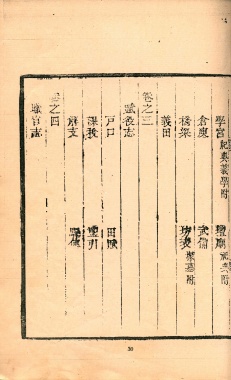 學宮 祀典義學附 壇廟 祀典附
倉庾 武備
橋梁 坊表 塚墓附
義田
卷之三
賦役志
戶口 田賦
課稅 鹽引
解支
卷之四
職官志
30